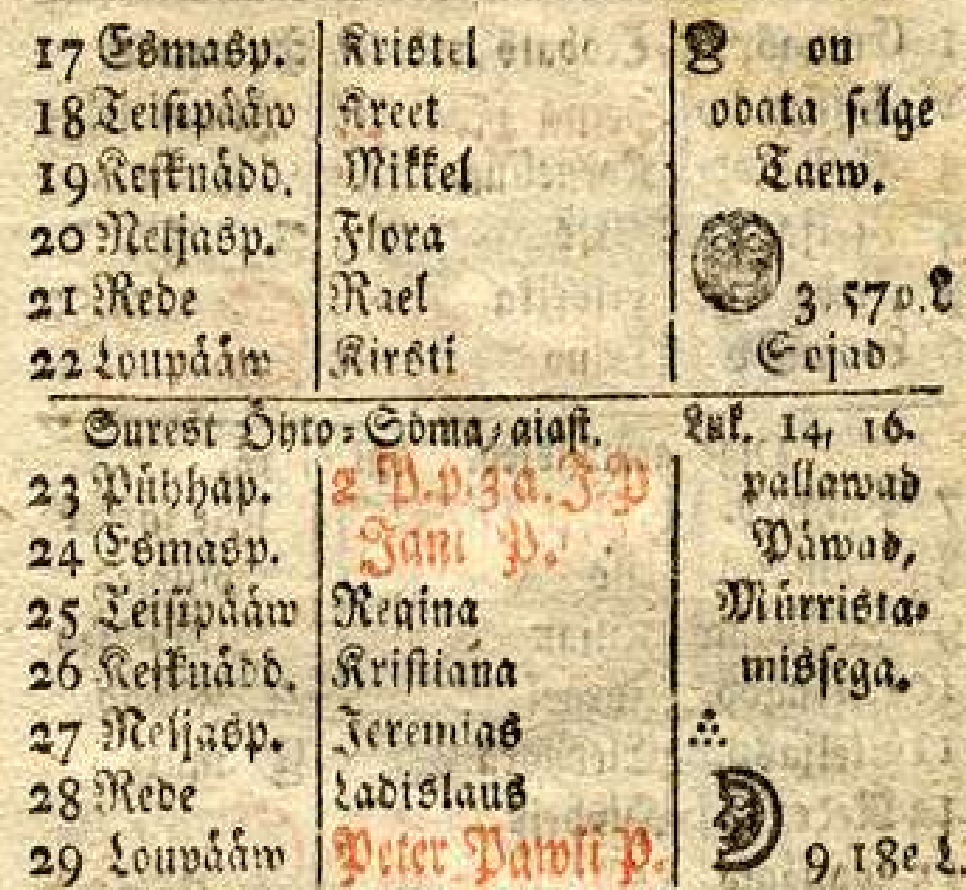 17 Esmasp. Kristel on
18 Teisipååw Kreet oodata selge
19 Kesknådd. Mikkel Taew.
20 Neljasp. Flora
21 Rede Rael 3, 57 p. L
22 Loupååw Kirsti Sojad
Surest Öhto-Söma-aiast. Luk. 14, 16.
23 Pühhap. 2 P. p. 3 a. J. P pallawad
24 Esmasp. Jani P. Påwad,
25 Teisipååw Regina Mürrista-
26 Kesknådd. Kristiana missega.
27 Neljasp. Jeremias
28 Rede Ladislaus
29 Loupååw Peter Pawli P. 9, 18 e. L.